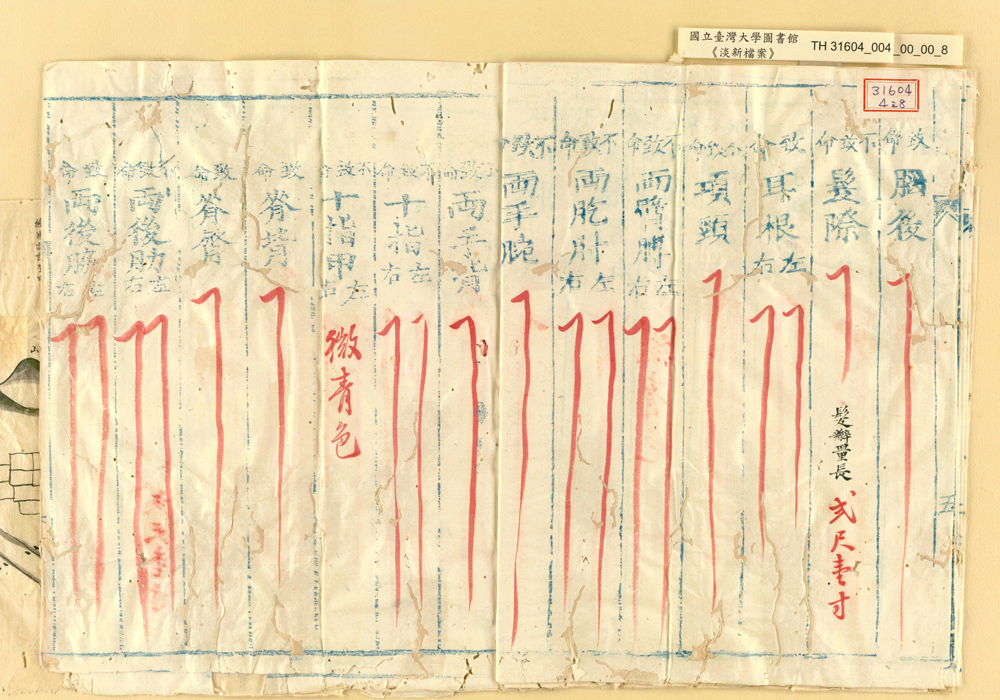 國立臺灣大學圖書館
《淡新檔案》
TH 31604_004_00_00_8
31604
428
致命
腦後
不致命
髮際
髮辮量長
弍尺壹寸
致命
耳根
左
右
不致命
項頸
不致命
兩臂膊
左
右
不致命
兩肐肘
左
右
不致命
兩手腕
不致命
兩手背
不致命
十指
左
右
不致命
十指甲
左
右
微青色
致命
脊背
致命
脊膂
不致命
兩後肋
左
右
致命
兩後脇
左
右
五